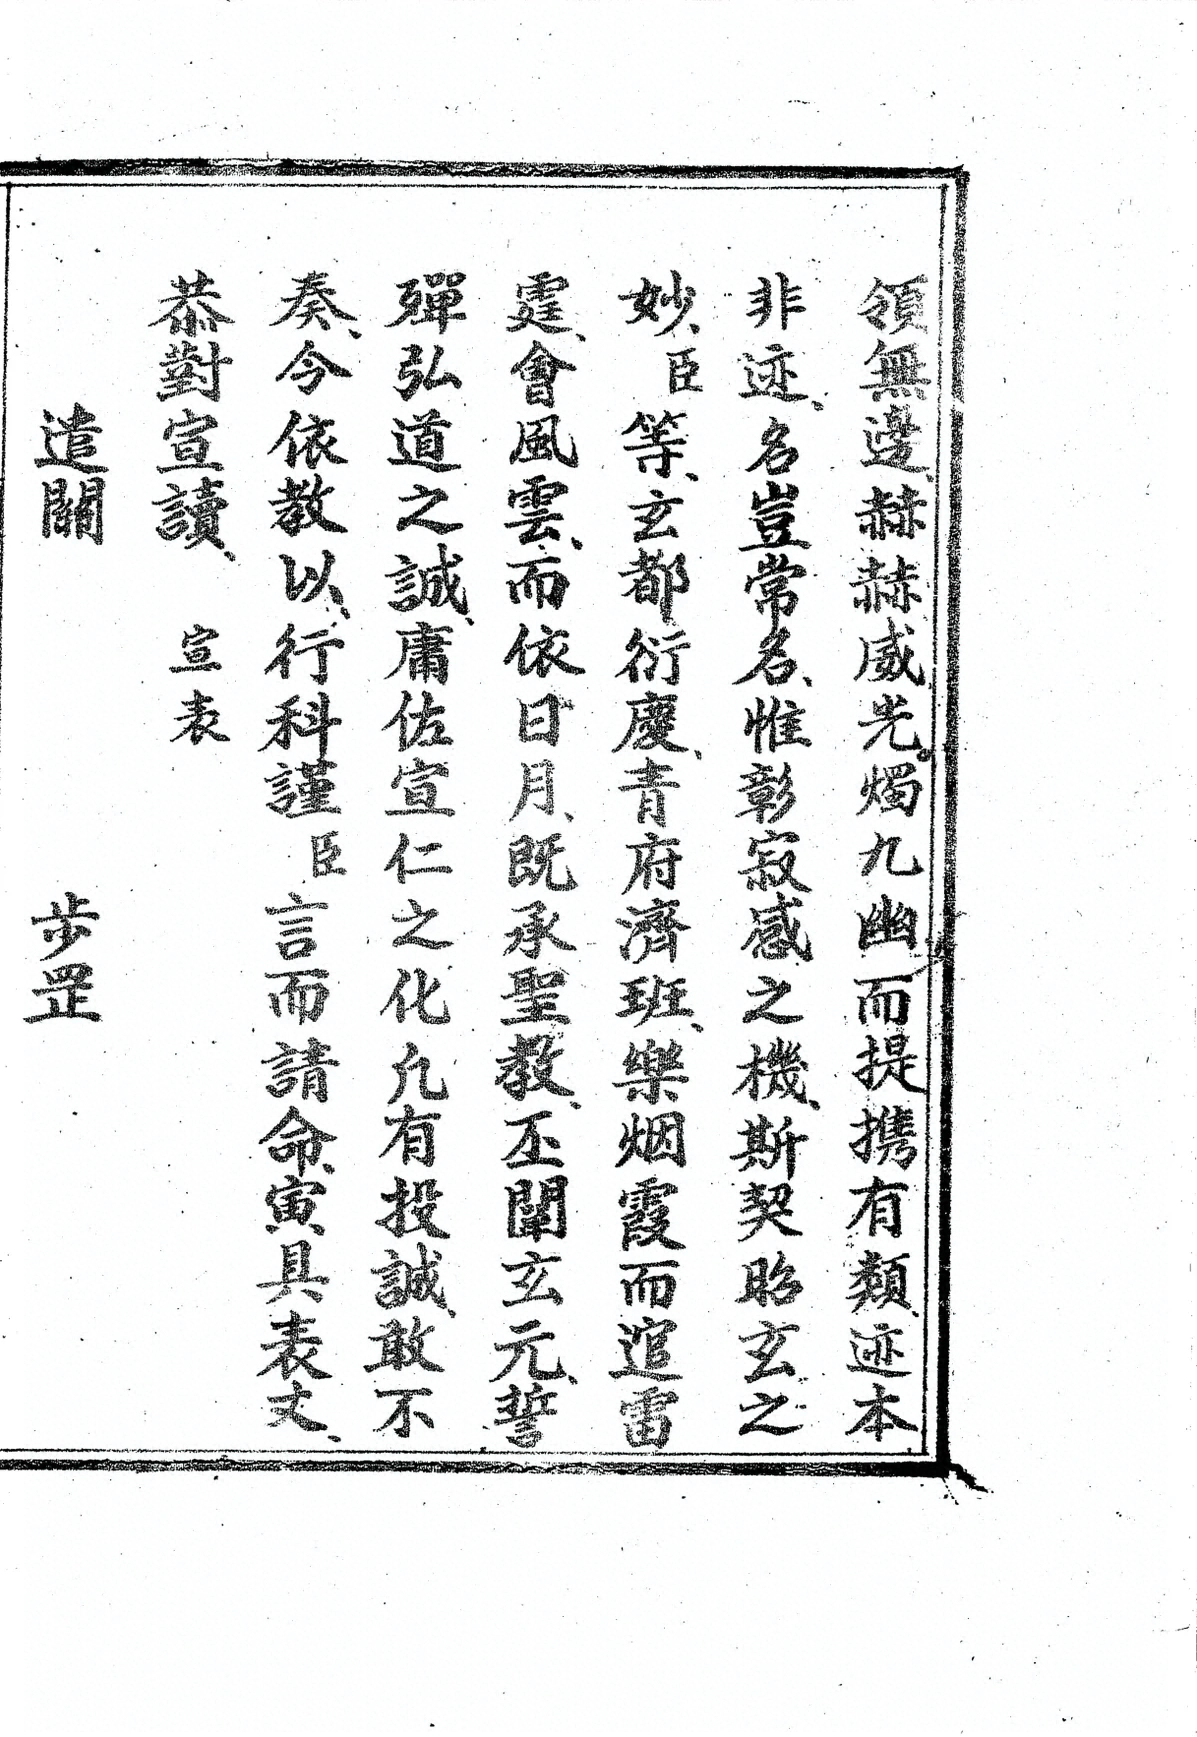 領無邊、赫赫威光。燭九幽而提攜有類、迹本
非迹、名豈常名、惟彰寂感之機、斯契昭玄之
妙、臣等、玄都衍慶、青府濟班、樂烟霞而逭雷
霆、會風雲、而依日月、既承聖教、丕闡玄元、誓
殫弘道之誠、庸佐宣仁之化凢有投誠、敢不
奏、今依教以、行科謹臣言而請命、寅具表文、
恭對宣讀、宣表
遣關 步罡